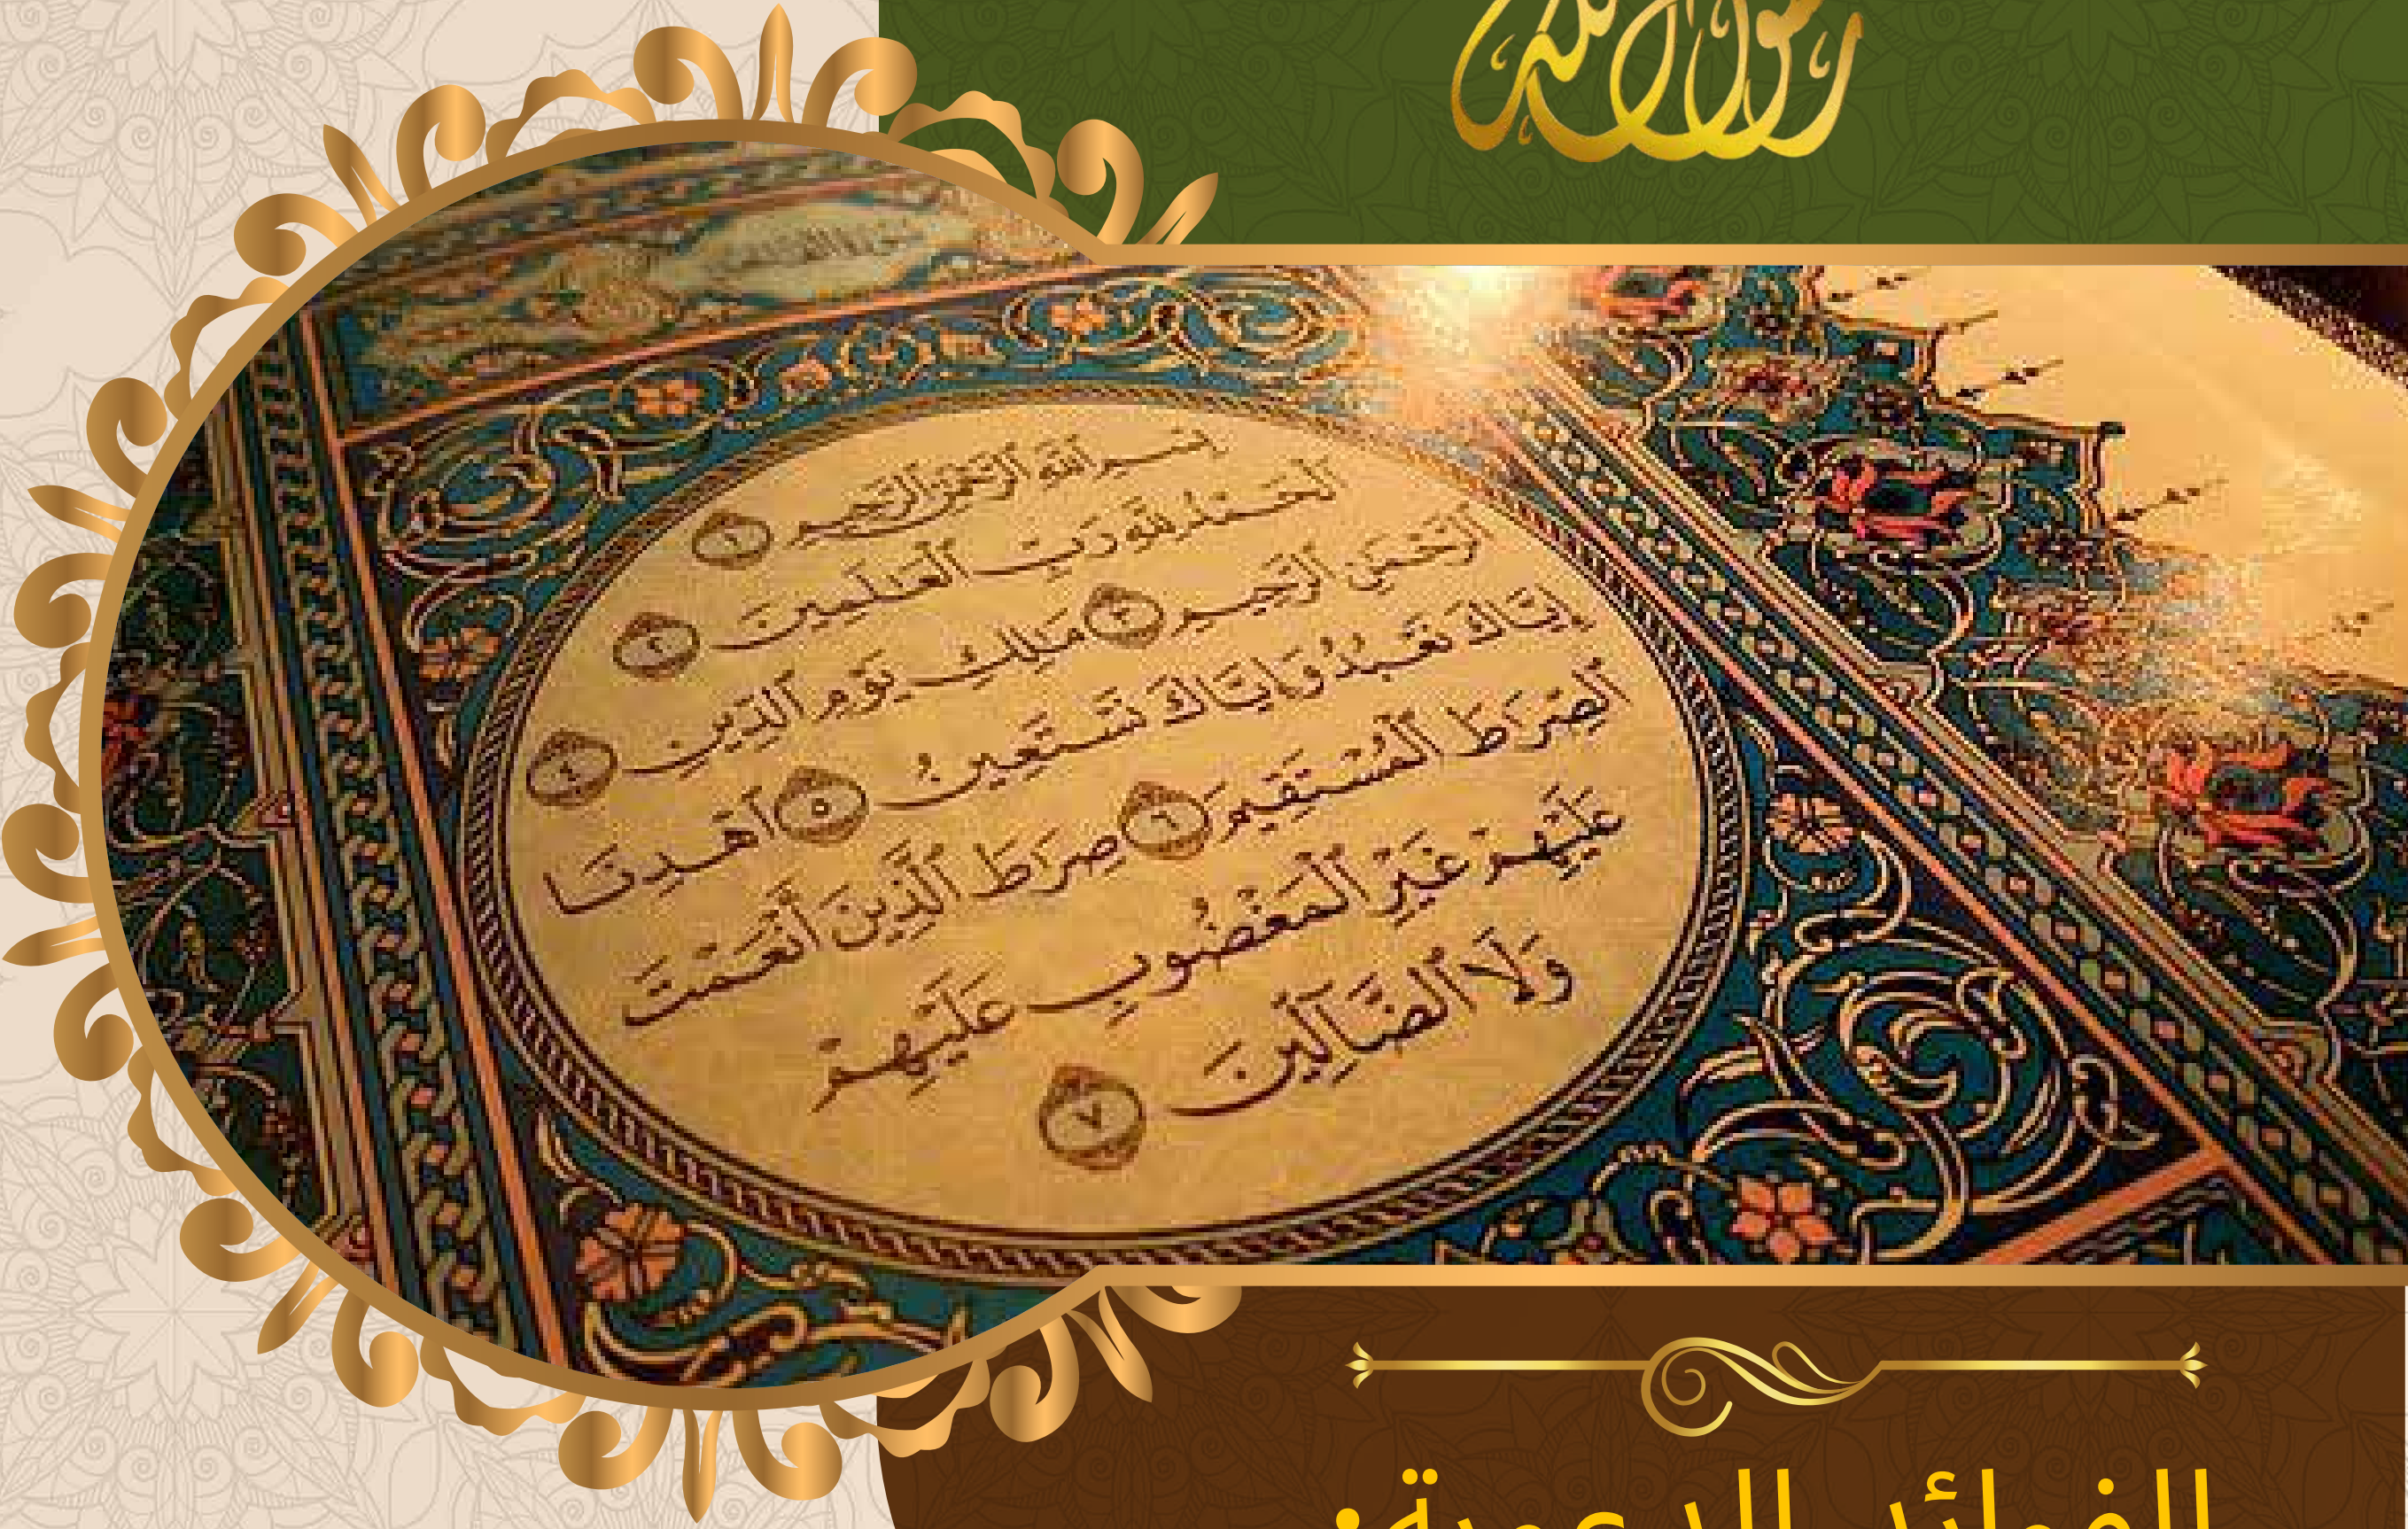 رسول الله
بِسْمِ ٱللَّهِ ٱلرَّحْمَٰنِ ٱلرَّحِيمِ ١
ٱلْحَمْدُ لِلَّهِ رَبِّ ٱلْعَٰلَمِينَ ٢
ٱلرَّحْمَٰنِ ٱلرَّحِيمِ ٣ مَٰلِكِ يَوْمِ ٱلدِّينِ ٤
إِيَّاكَ نَعْبُدُ وَإِيَّاكَ نَسْتَعِينُ ٥ ٱهْدِنَا
ٱلصِّرَٰطَ ٱلْمُسْتَقِيمَ ٦ صِرَٰطَ ٱلَّذِينَ أَنْعَمْتَ
عَلَيْهِمْ غَيْرِ ٱلْمَغْضُوبِ عَلَيْهِمْ
وَلَا ٱلضَّآلِّينَ ٧